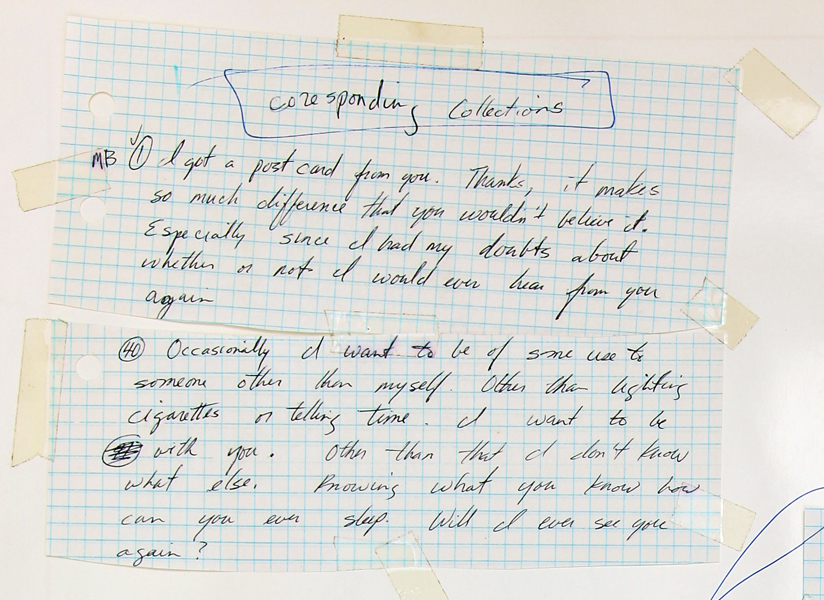 Coresponding Collections
MB ① I got a post card from you. Thanks, it makes
so much difference that you wouldn't believe it.
Especially since I had my doubts about
whether or not I would ever hear from you
again
㊵ Occasionally I want to be of some use to
someone other then myself. Other than lighting
cigarettes or telling time. I want to be
with you. Other than that I don't know
what else. Knowing what you know how
can you ever sleep. Will I ever see you
again?